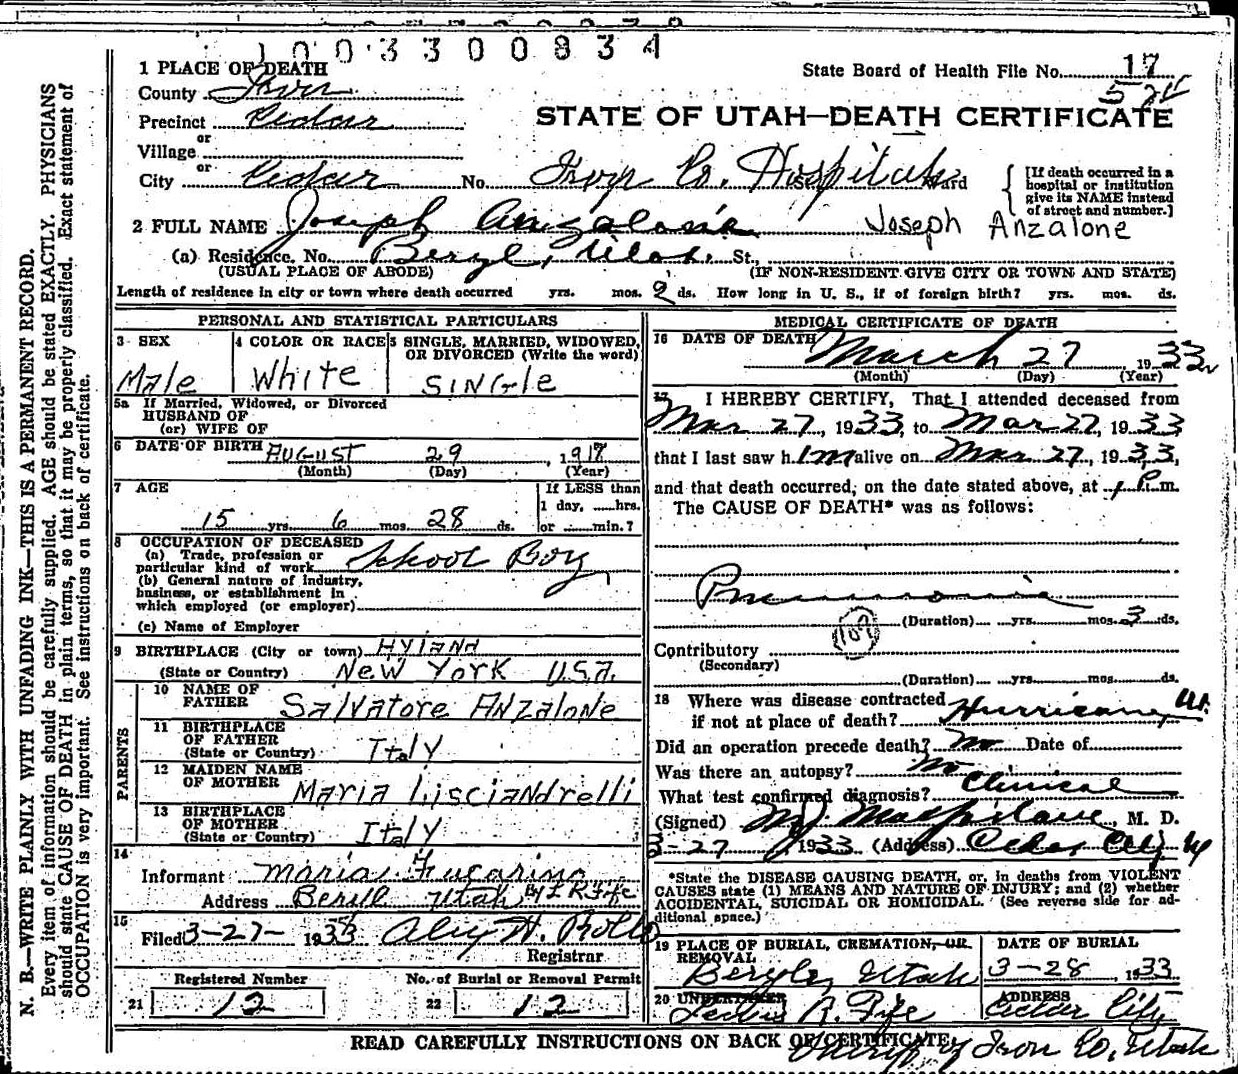 1003300834
1 PLACE OF DEATH
State Board of Health File No. 17
County Iron
STATE OF UTAH—DEATH CERTIFICATE
Precinct Cedar
or
Village
or
City Cedar No. Iron Co. Hospital Ward
[If death occurred in a
hospital or institution
give its NAME instead
of street and number.]
2 FULL NAME Joseph Anzalone Joseph Anzalone
(a) Residence. No. Beryl, Utah. St.,
(USUAL PLACE OF ABODE) (IF NON-RESIDENT GIVE CITY OR TOWN AND STATE)
Length of residence in city or town where death occurred yrs. mos. 2 ds. How long in U. S., if of foreign birth? yrs. mos. ds.
PERSONAL AND STATISTICAL PARTICULARS
3 SEX 4 COLOR OR RACE 5 SINGLE, MARRIED, WIDOWED,
OR DIVORCED (Write the word)
Male White SINGle
5a If Married, Widowed, or Divorced
HUSBAND OF
(or) WIFE OF
6 DATE OF BIRTH AUGUST 29, 1917
(Month) (Day) (Year)
7 AGE If LESS than
1 day, hrs.
15 yrs. 6 mos. 28 ds. or min.?
8 OCCUPATION OF DECEASED
(a) Trade, profession or
particular kind of work School Boy
(b) General nature of industry,
business, or establishment in
which employed (or employer)
(c) Name of Employer
9 BIRTHPLACE (City or town) HYland
(State or Country) New York U.S.A.
PARENTS
10 NAME OF
FATHER Salvatore Anzalone
11 BIRTHPLACE
OF FATHER
(State or Country) Italy
12 MAIDEN NAME
OF MOTHER Maria Lisciandrelli
13 BIRTHPLACE
OF MOTHER
(State or Country) Italy
14
Informant Maria Fucarino
Address Berill Utah By L R Fife
15
Filed 3-27- 1933
Registrar
Registered Number No. of Burial or Removal Permit
21 12 22 12
MEDICAL CERTIFICATE OF DEATH
16 DATE OF DEATH March 27 1933
(Month) (Day) (Year)
17 I HEREBY CERTIFY, That I attended deceased from
Mar 27, 1933, to Mar 27, 1933,
that I last saw him alive on Mar 27, 1933,
and that death occurred, on the date stated above, at 1 P.m.
The CAUSE OF DEATH* was as follows:
Pneumonia
(Duration) yrs. mos. 3 ds.
107
Contributory
(Secondary)
(Duration) yrs. mos. ds.
18 Where was disease contracted
if not at place of death? Hurricane, Ut.
Did an operation precede death? No Date of
Was there an autopsy? No
What test confirmed diagnosis? Clinical
(Signed) M. D.
3-27 1933 (Address) Cedar City Ut
*State the DISEASE CAUSING DEATH, or, in deaths from VIOLENT
CAUSES state (1) MEANS AND NATURE OF INJURY; and (2) whether
ACCIDENTAL, SUICIDAL OR HOMICIDAL. (See reverse side for ad-
ditional space.)
19 PLACE OF BURIAL, CREMATION, OR
REMOVAL DATE OF BURIAL
Beryle, Utah 3-28, 1933
20 UNDERTAKER ADDRESS
R. Fife Cedar City
Sheriff of Iron Co, Utah
READ CAREFULLY INSTRUCTIONS ON BACK OF CERTIFICATE
N. B.—WRITE PLAINLY WITH UNFADING INK—THIS IS A PERMANENT RECORD.
Every item of information should be carefully supplied. AGE should be stated EXACTLY. PHYSICIANS
should state CAUSE OF DEATH in plain terms, so that it may be properly classified. Exact statement of
OCCUPATION is very important. See instructions on back of certificate.